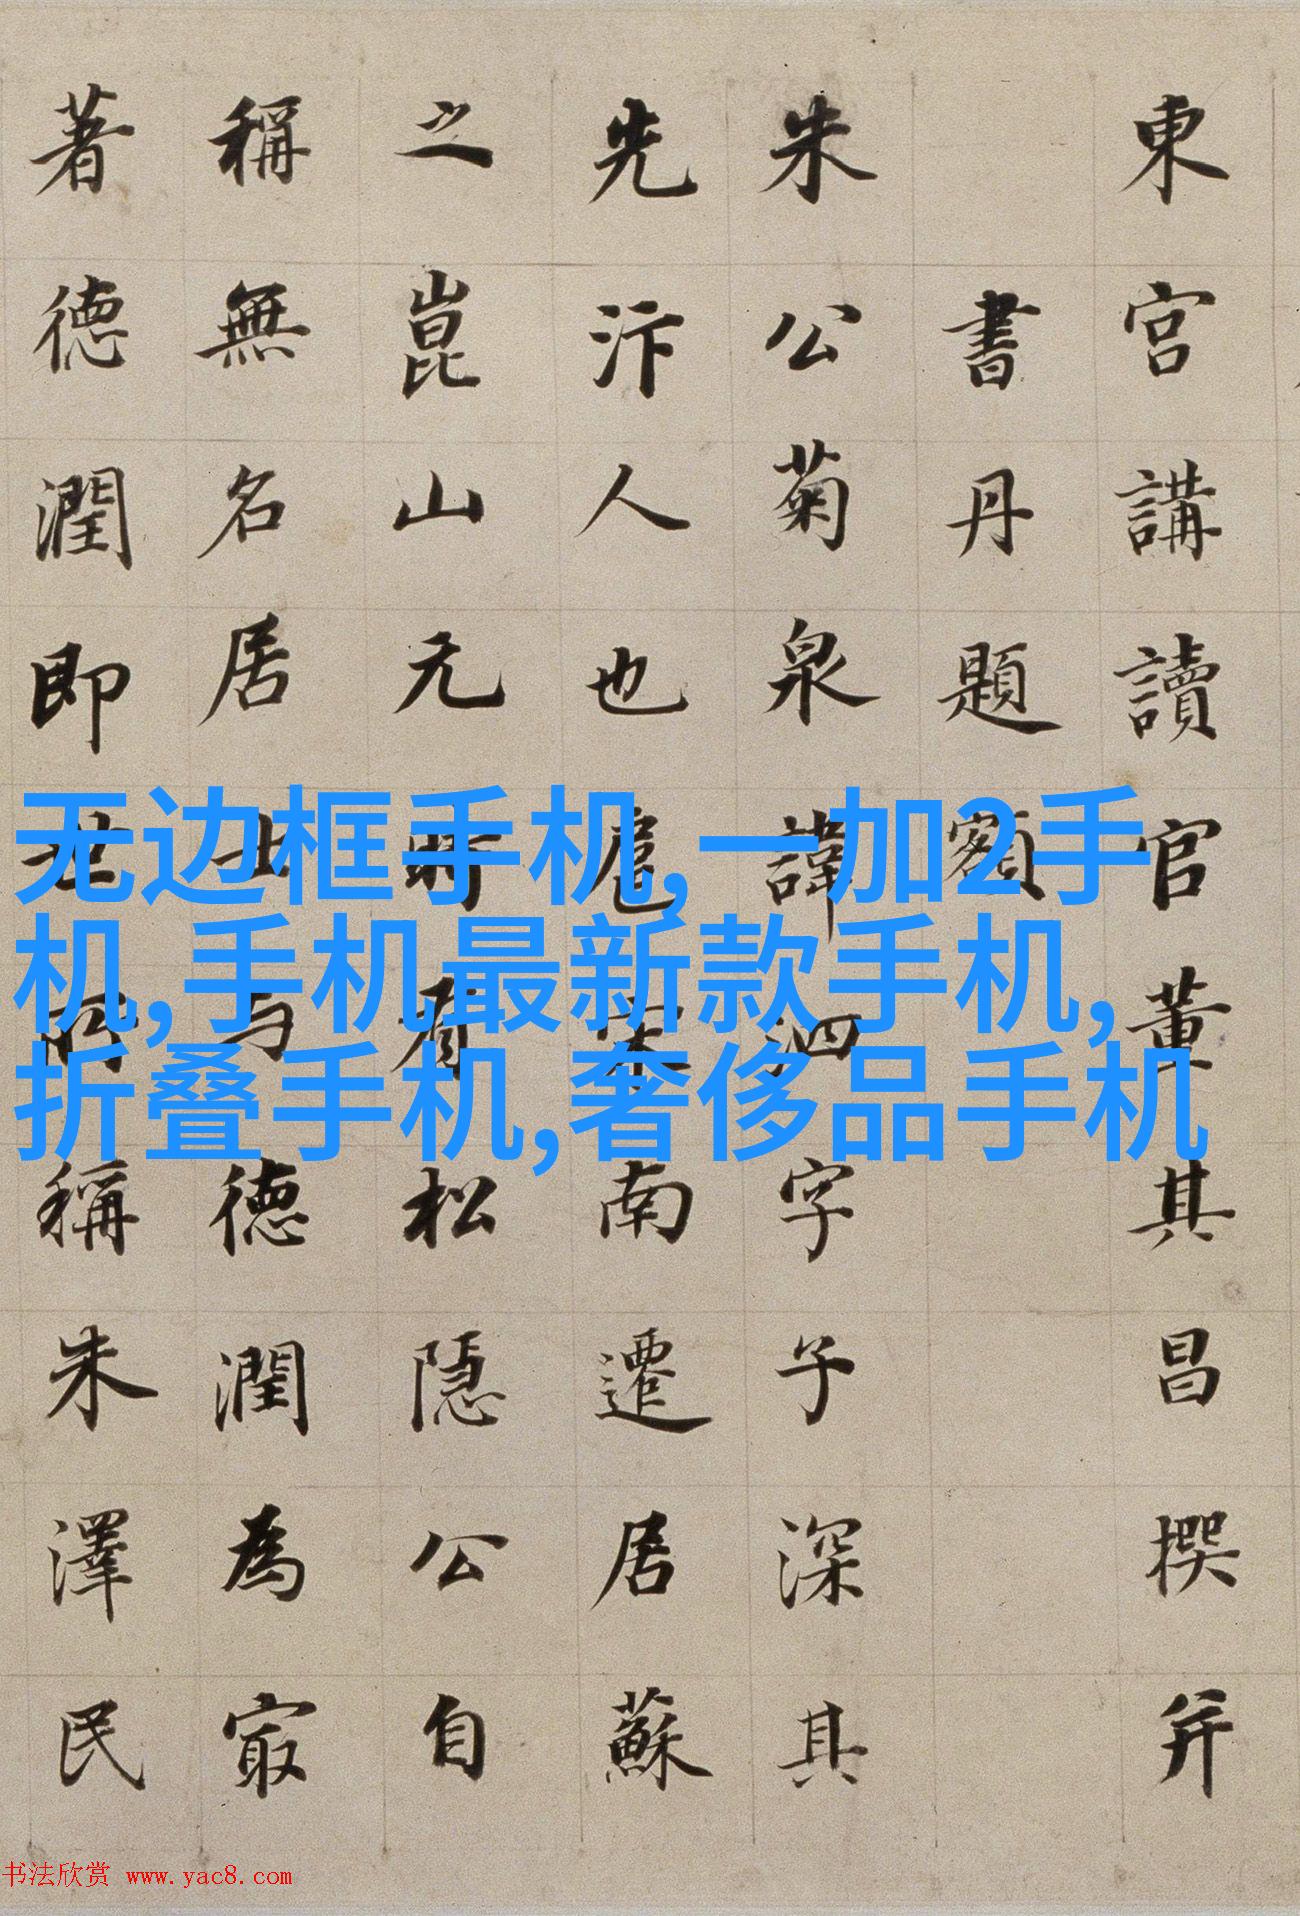 東宮講讀官董其昌撰并
書丹題額
朱公菊泉諱泗字子深其
先汴人也扈宋南遷居蘇
之崑山元時有松隱公自
稱無名居士与德潤為㝡
著德潤即世所稱朱澤民
无边框手机,一加2手
机,手机最新款手机,
折叠手机,奢侈品手机
书法欣赏 www.yac8.com